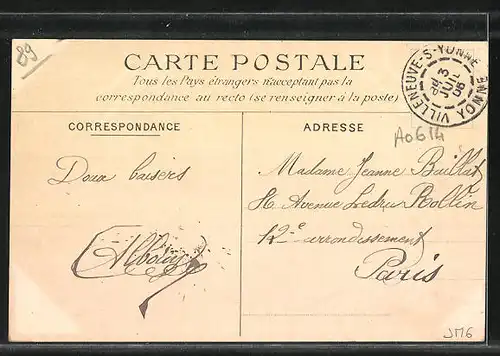 89
CARTE POSTALE
Tous les Pays étrangers n'acceptant pas la
correspondance au recto (se renseigner à la poste)
VILLENEUVE-S-YONNE
YONNE
3
JUIL
06
CORRESPONDANCE
ADRESSE
A0614
Doux baisers
Madame Jeanne
Avenue Ledru Rollin
12e arrondissement
Paris
JM6